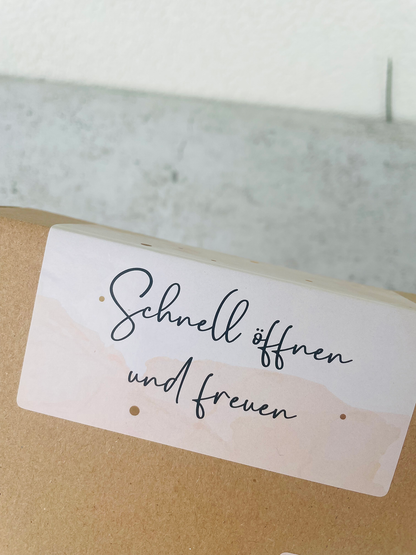 Schnell öffnen
und freuen